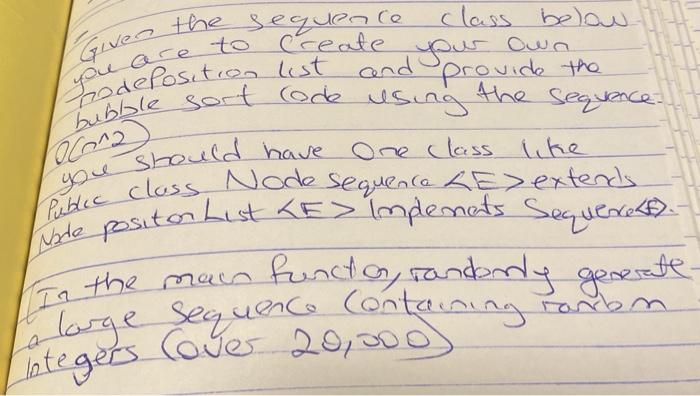 Given the sequence class below
you are to Create your own
nodePosition list and provide the
bubble sort code using the sequence.
O(n^2)
you should have One class like
Public class Node sequence <E> extends
Node positonList <E> Implemets Sequence<E>.
In the main function, randomly generate
a large sequence Containing random
integers (over 20,000)